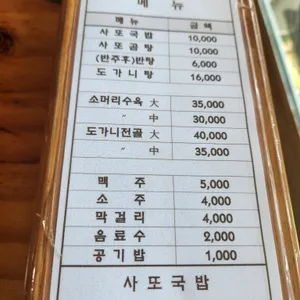 메뉴
메뉴 금액
사또국밥 10,000
사또곰탕 10,000
(반주후)반탕 6,000
도가니탕 16,000
소머리수육 大 35,000
〃 中 30,000
도가니전골 大 40,000
〃 中 35,000
맥주 5,000
소주 4,000
막걸리 4,000
음료수 2,000
공기밥 1,000
사또국밥